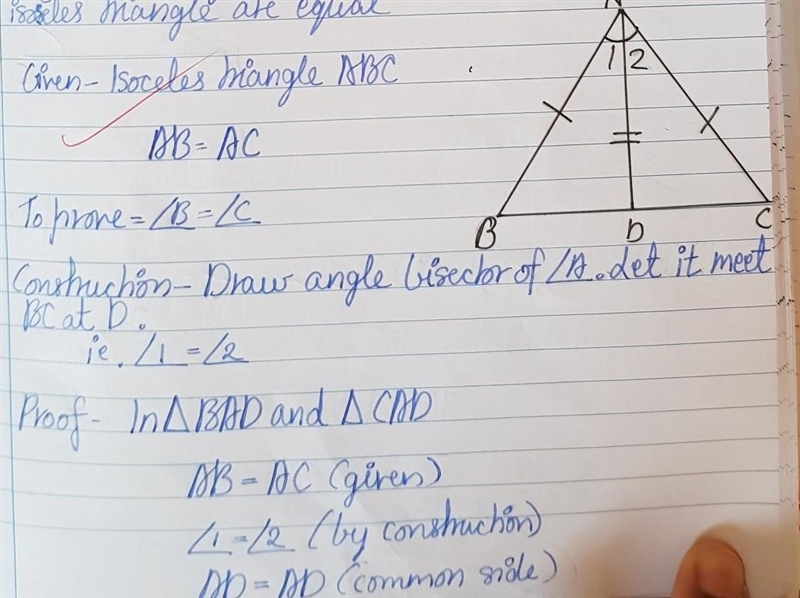 isoceles triangle are equal
Given - Isoceles triangle ABC
AB = AC
To prove = ∠B = ∠C
Construction - Draw angle bisector of ∠A. Let it meet
BC at D.
ie. ∠1 = ∠2
Proof - In △BAD and △CAD
AB = AC (given)
∠1 = ∠2 (by construction)
AD = AD (common side)
1 2
B D C